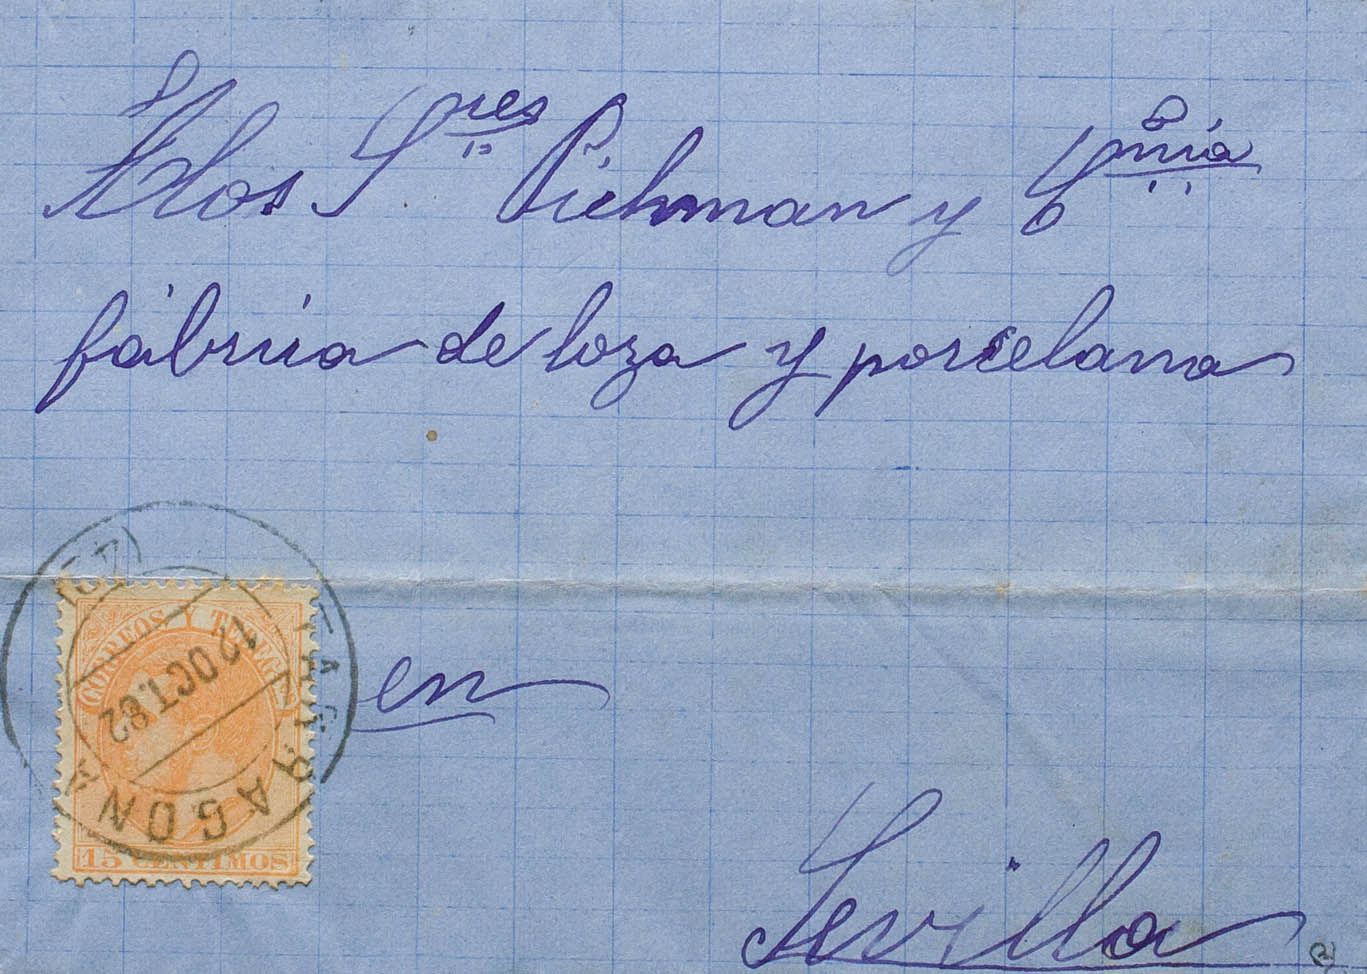 A los Sres Pichman y Cmia
fábrica de loza y porcelana
en
Sevilla
CORREOS Y TELEGFS
15 CENTIMOS
TARRAGONA
12 OCT. 82